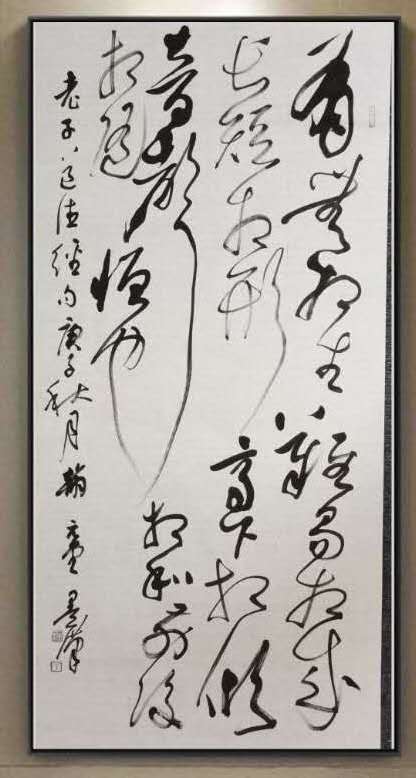 有無相生難易相成
長短相形高下相傾
音聲相和前後
相隨恒也
老子道德經句庚子秋月